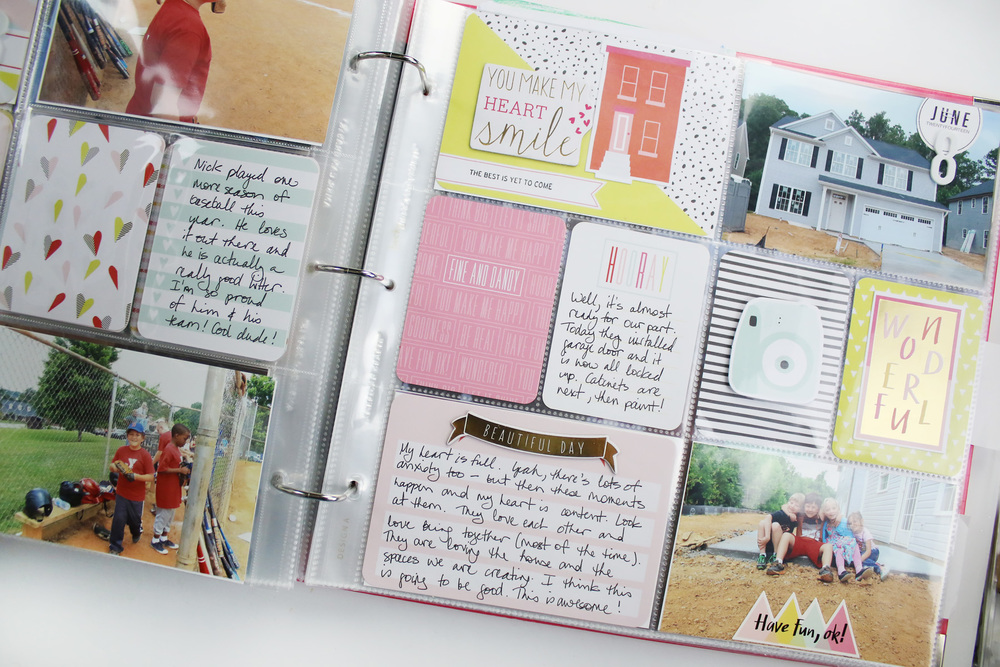 Nick played one
more season of
baseball this
year. He loves
it out there and
he is actually a
really good hitter.
I'm so proud
of him & his
team! Cool dude!
YOU MAKE MY
HEART
smile
THE BEST IS YET TO COME
JUNE
8
FINE AND DANDY
HOORAY
Well, it's almost
ready for our part.
Today they installed
garage door and it
is now all locked
up. Cabinets are
next, then paint!
WONDERFUL
BEAUTIFUL DAY
My heart is full. Yeah, there's lots of
anxiety too - but then these moments
happen and my heart is content. Look
at them. They love each other and
love being together (most of the time).
They are loving the house and the
spaces we are creating. I think this
is going to be good. This is awesome!
Have Fun, ok!